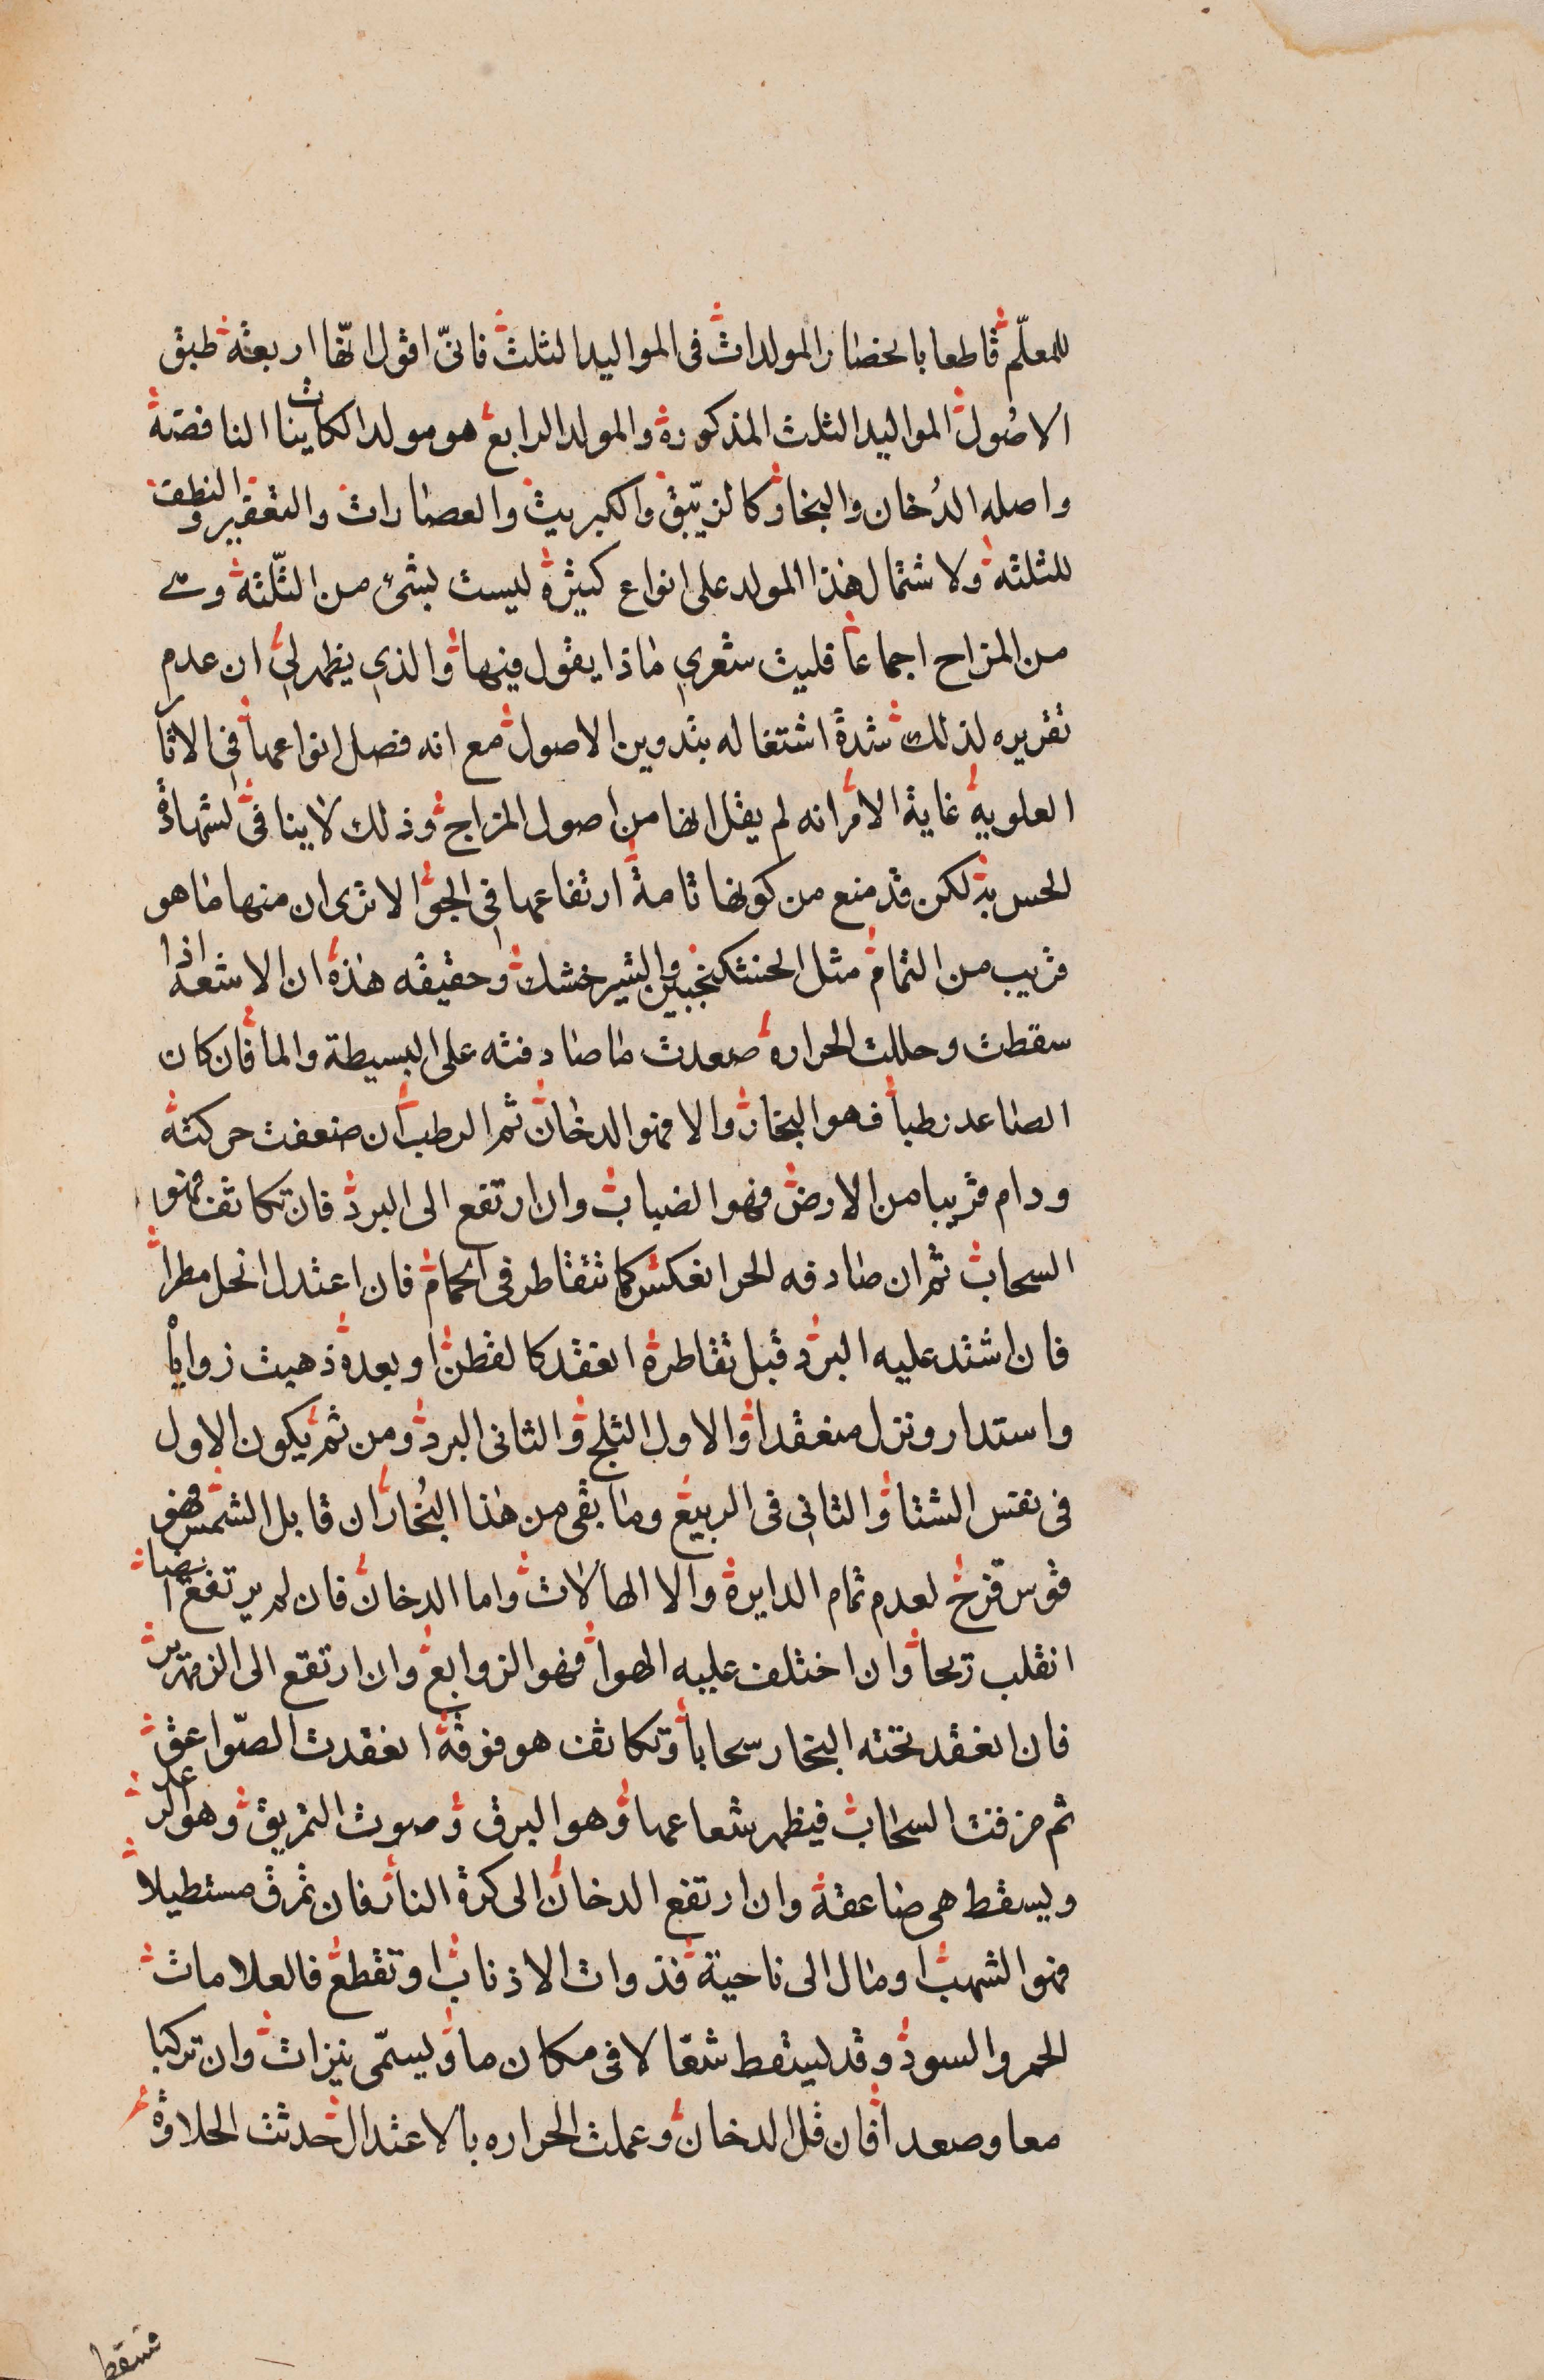 للمعلّم قاطعا بانحصار المولدات فى المواليد الثلث فانىّ اقول انهّا اربعة طبق
الاصُول المواليد الثلث المذكورة والمولد الرابع هو مولد الكاينات الناقصة
واصله الدُخان والبخار كالزيّبق والكبريت والعصارات والتعقير والنطف
للثلثة ولاشتمال هذا المولد على انواع كثيرة ليست بشئ من الثّلثة وهى
من المزاح اجماعا فليت شعري ماذا يقول فيها والذي يظهر لي ان عدم
تقريره لذلك شدة اشتغاله بتدوين الاصول مع انه فصل انواعها في الاثار
العلوية غاية الامر انه لم يقل انها من اصول المزاج وذلك لاينافى لشهادة
الحس به لكن قد منع من كونها تامة ارتفاعها في الجو الا ترى ان منها ما هو
قريب من التمام مثل الحنتكنجبين والشيرخشك وحقيقه هذه ان الاشعه اذا
سقطت وحللت الحراره صعدت ما صادفته على البسيطة والما فان كان
الصاعد رطبا فهو البخار والا فهو الدخان ثم الرطب ان ضعفت حركته
ودام قريبا من الارض فهو الضباب وان ارتفع الى البرد فان تكاثف فهو
السحاب ثم ان صادفه الحر انعكس كما تتقاطر في الحمام فان اعتدل انحل مطرا
فان اشتد عليه البرد قبل تقاطره انعقد كالقطن او بعده ذهبت زواياُ
واستدار ونزل منعقدا والاول الثلج والثانى البرد ومن ثم يكون الاول
فى نفس الشتا والثاني فى الربيع وما بقى من هذا البُخار ان قابل الشمس فهو
قوس قزح لعدم تمام الدايرة والا الهالات واما الدخان فان لم يرتفع ايضا
انقلب ريحا وان اختلف عليه الهوا فهو الزوابع وان ارتفع الى الزمهرير
فان انعقد تحته البخار سحابا وتكاثف هو فوقه انعقدت الصّواعق
ثم مزقت السحاب فيظهر شعاعها وهو البرق وصوت التمزيق وهو الرعد
ويسقط هى صاعقة وان ارتفع الدخان الى كرة النار فان تمزق مستطيلا
فهو الشهب او مال الى ناحية فذوات الاذناب او تقطع فالعلامات
الحمر والسود وقد ليسقط شعّالا فى مكان ما ويسمّى نيزات وان تركبا
معا وصعدا فان قل الدخان وعملت الحراره بالاعتدال حدثت الحلاوة